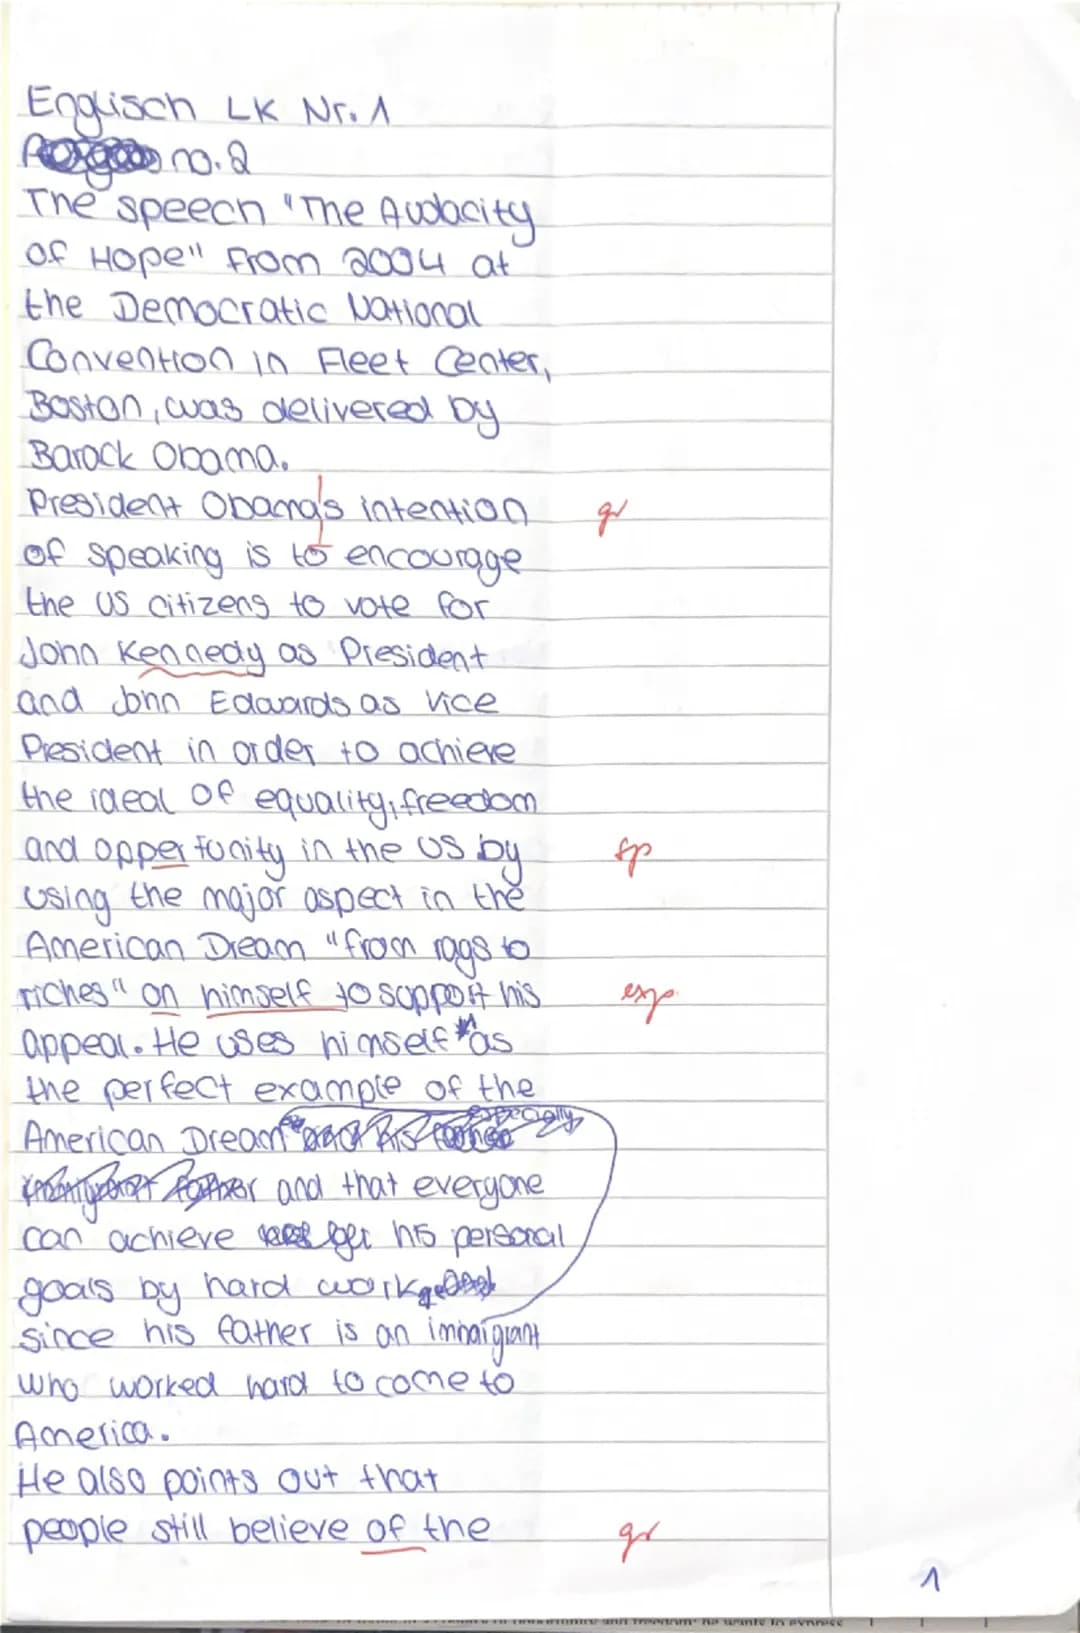 Englisch LK Nr. 1
no. 2
The speech "The Audacity
of Hope" from 2004 at
the Democratic National
Convention in Fleet Center,
Boston, was delivered by
Barack Obama.
President Obama's intention gr
of speaking is to encourage
the US citizens to vote for
John Kennedy as President
and John Edwards as Vice
President in order to achieve
the ideal of equality, freedom
and oppertunity in the US by sp
using the major aspect in the
American Dream "from rags to
riches" on himself to support his exp.
appeal. He uses himself as
the perfect example of the
American Dream especially
and that everyone
can achieve his personal
goals by hard work
since his father is an immigrant
who worked hard to come to
America.
He also points out that
people still believe of the gr
1